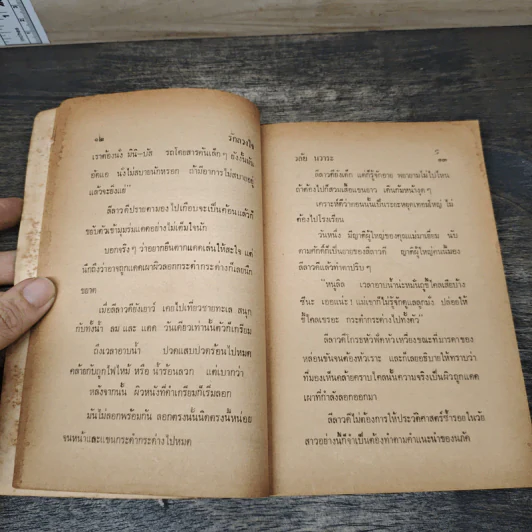 ๑๒ รักลวงใจ
เราต้องนั่ง มินิ-บัส รถโดยสารคันเล็กๆ ยังงั้นมัน
อัดแอ นั่งไม่สบายนักหรอก ถ้ามีอาการไม่สบายอยู่
แล้วจะยิ่งแย่"
ลีลาวดีปรายตามองไปเกือบจะเป็นค้อนแล้วก็
ขยับตัวเข้ามุมร่มแดดอย่างไม่เต็มใจนัก
บอกจริงๆ ว่าอยากยืนตากแดดเล่นให้สะใจ แต่
นึกถึงว่าอาจถูกแดดเผาผิวลอกกระดำกระด่างก็เลยนึก
ขยาด
เมื่อลีลาวดียังเยาว์ เคยไปเที่ยวชายทะเล สนุก
กับทั้งน้ำ ลม และ แดด วันเดียวเท่านั้นตัวก็เกรียม
ถึงเวลาอาบน้ำ ปวดแสบปวดร้อนไปหมด
คล้ายกับถูกไฟไหม้ หรือ น้ำร้อนลวก แต่เบากว่า
หลังจากนั้น ผิวหนังที่ดำเกรียมก็เริ่มลอก
มันไม่ลอกพร้อมกัน ลอกตรงนั้นนิดตรงนี้หน่อย
จนหน้าและแขนกระดำกระด่างไปหมด
วลัย นวาระ ๑๓
ลีลาวดียังเด็ก แต่ก็รู้จักอาย พออายไม่ไปไหน
ถ้าต้องไปก็สวมเสื้อแขนยาว เดินก้มหน้างุดๆ
เคราะห์ดีว่าตอนนั้นเป็นระยะหยุดเทอมใหญ่ ไม่
ต้องไปโรงเรียน
วันหนึ่ง มีญาติผู้ใหญ่ของคุณแม่มาเยี่ยม นับ
ตามศักดิ์ก็เป็นยายของลีลาวดี ญาติผู้ใหญ่คนนี้มอง
ลีลาวดีแล้วทำตาปริบๆ
"หนูลีล เวลาอาบน้ำน่ะหมั่นถูขี้ไคลเสียบ้าง
ซีนะ เยอะแน่ะ! แม่เขาก็ไม่รู้จักดูแลลูกมั่ง ปล่อยให้
ขี้ไคลเขรอะ กระดำกระด่างไปทั้งตัว"
ลีลาวดีโกรธหัวฟัดหัวเหวี่ยงขณะที่มารดาของ
หล่อนขันจนต้องหัวเราะ และก็เลยอธิบายให้ทราบว่า
ที่มองเห็นคล้ายคราบไคลนั้นความจริงเป็นผิวถูกแดด
เผาที่กำลังลอกออกมา
ลีลาวดีไม่ต้องการให้ประวัติศาสตร์ซ้ำรอยในวัย
สาวอย่างนี้ก็จำเป็นต้องทำตามคำแนะนำของนภัค